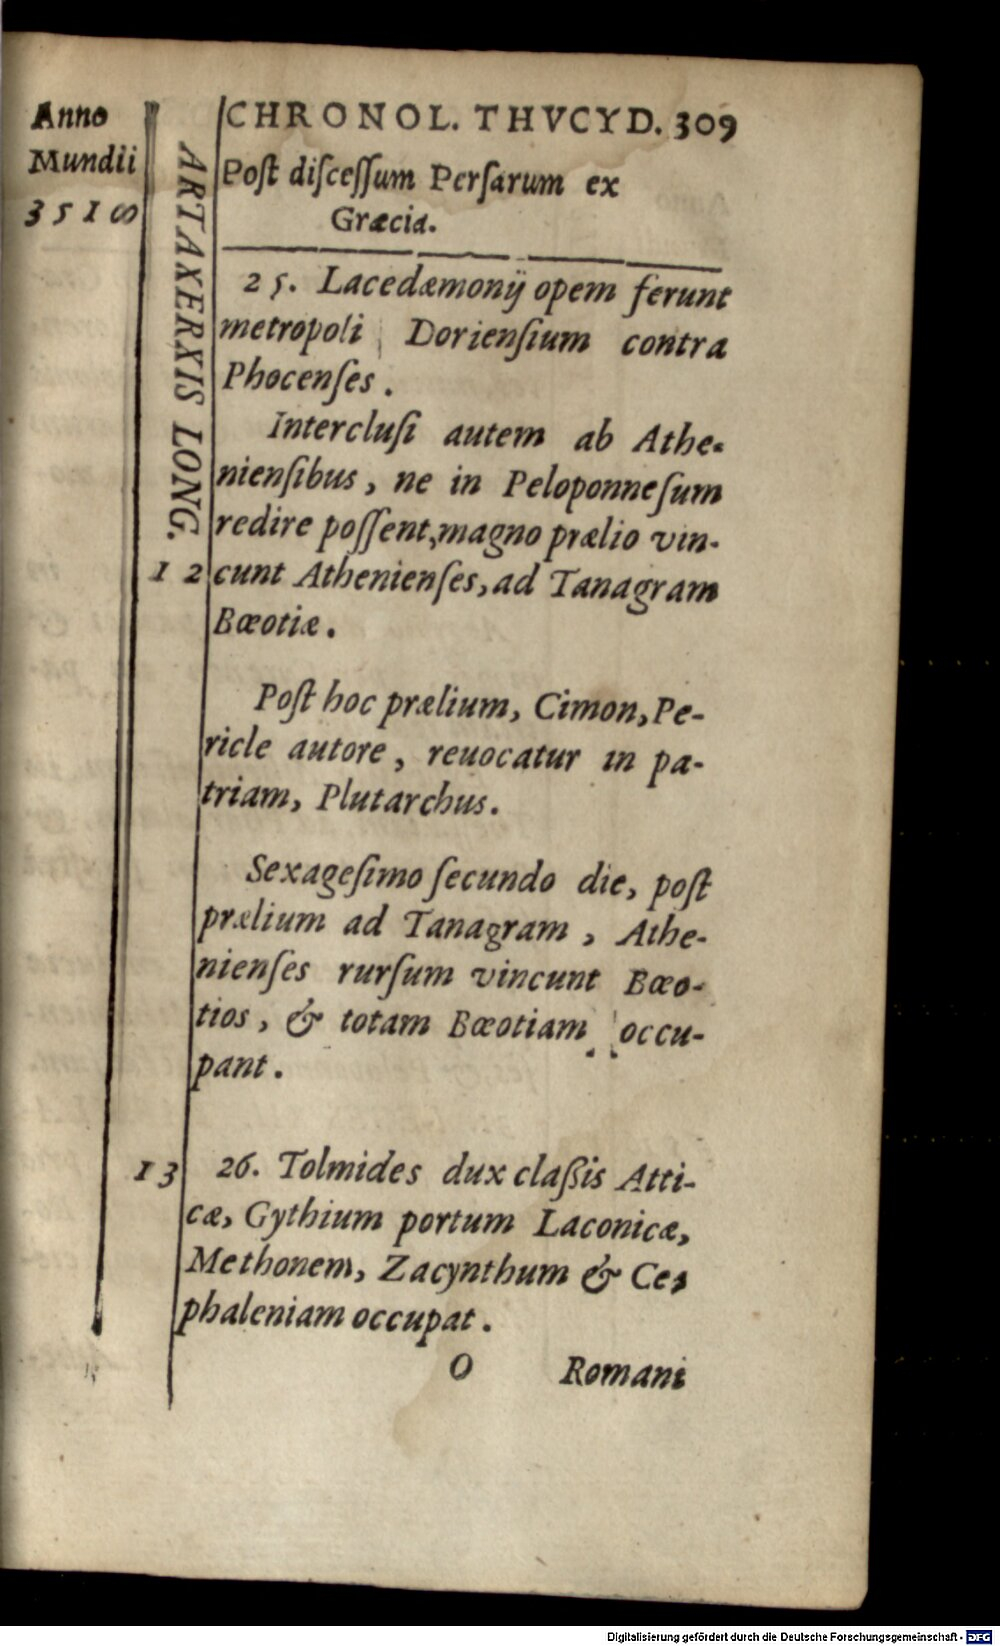 Anno
Mundii
3518
ARTAXERXIS LONG.
CHRONOL. THVCYD. 309
Poſt diſceſſum Perſarum ex
Græcia.
25. Lacedæmonij opem ferunt
metropoli Dorienſium contra
Phocenſes.
Intercluſi autem ab Athe-
nienſibus, ne in Peloponneſum
redire poſſent, magno prælio vin-
12 cunt Athenienſes, ad Tanagram
Bœotiæ.
Poſt hoc prælium, Cimon, Pe-
ricle autore, reuocatur in pa-
triam, Plutarchus.
Sexageſimo ſecundo die, poſt
prælium ad Tanagram, Athe-
nienſes rurſum vincunt Bœo-
tios, & totam Bœotiam occu-
pant.
13 26. Tolmides dux claßis Atti-
cæ, Gythium portum Laconicæ,
Methonem, Zacynthum & Ce-
phaleniam occupat.
O Romani
Digitalisierung gefördert durch die Deutsche Forschungsgemeinschaft - DFG